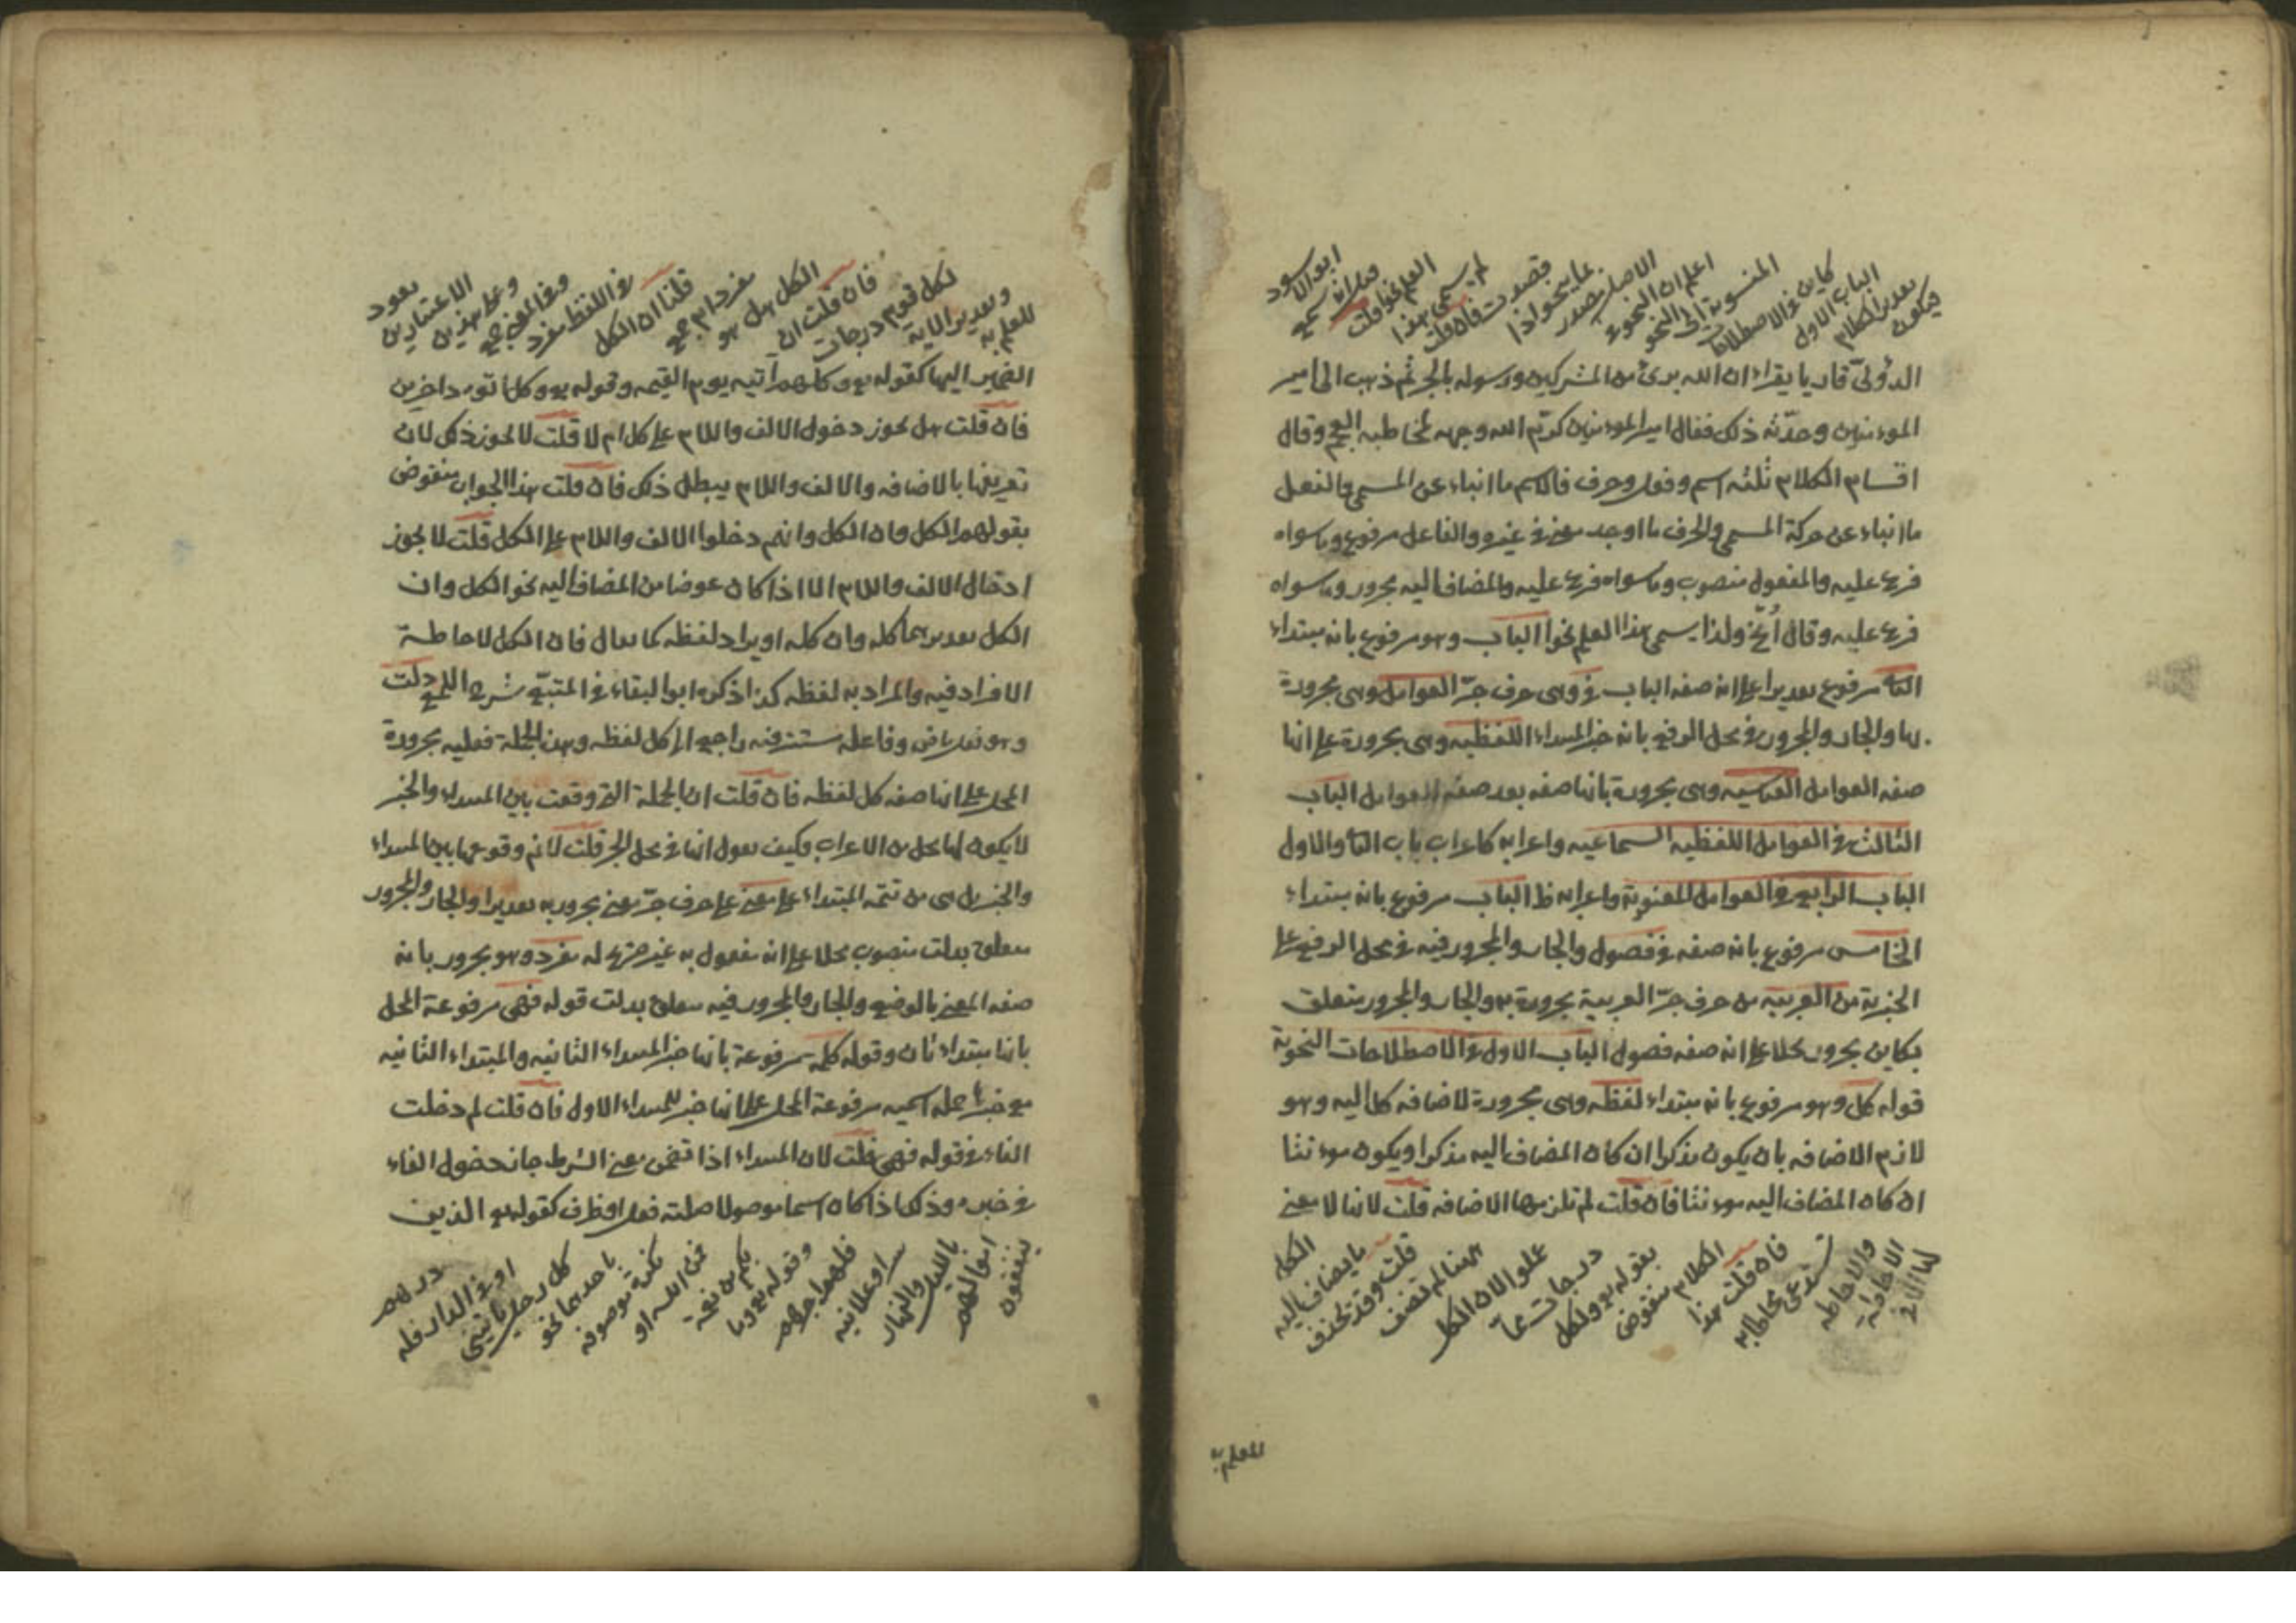 فيكون
تقدير الكلام
الباب الاول
كاين في الاصطلاحات
المنسوبة الى النحو
اعلم ان النحو في
الاصل مصدر
نحا ينحو اذا
قصدت فان قلت
لم يسمى هذا
العلم نحوا قلت
سمع
ابو الاسود
الدؤليّ قاريا يقراء ان الله برئ من المشركين ورسوله بالجر ثم ذهب الى امير
الموءمنين وحدّثه ذلك فقال امير الموءمنين كرّم الله وجهه لمخاطبه العجم وقال
اقسام الكلام ثلثه اسم وفعل وحرف فالاسم ما انباء عن المسمى والفعل
ما انباء عن حركة المسمى والحرف ما اوجد معنى في غيره والفاعل مرفوع وما سواه
فرع عليه والمفعول منصوب وما سواه فرع عليه والمضاف اليه مجرور وما سواه
فرع عليه وقال اُنحُ ولذا يسمى هذا العلم نحوا الباب وهو مرفوع بانه مبتداء
الثانى مرفوع تقديرا على انه صفه الباب في وهى حرف جرّ العوامل وهى مجرورة
بها والجار والمجرور في محل الرفع بانه خبر المبتداء اللفظيه وهى مجرورة على انها
صفه العوامل القياسيه وهى مجرورة بانها صفه بعد صفه للعوامل الباب
الثالث في العوامل اللفظيه السماعيه واعرابه كاعراب باب الثانى والاول
الباب الرابع في العوامل المعنوية واعرابه ظ الباب مرفوع بانه مبتداء
الخامس مرفوع بانه صفه في فصول والجار والمجرور فيه في محل الرفع على
الخبرية من العربيه من حرف جرّ العربية مجرورة به والجار والمجرور متعلق
بكاين مجرور محلا على انه صفه فصول الباب الاول في الاصطلاحات النحوية
قوله كل وهو مرفوع بانه مبتداء لفظه وهى مجرورة لاضافه كل اليه وهو
لازم الاضافه بان يكون مذكرا ان كان المضاف اليه مذكرا ويكون موءنثا
ان كان المضاف اليه موءنثا فان قلت لم تلزمها الاضافه قلت لانها لا معنى
لها الا في
الاضافه
والاحاطه
تستدعى محاطا به
فان قلت هذا
الكلام منقوض
بقوله تع ولكل
درجات مما
عملوا لان الكل
ههنا لم تضف
قلت وقد تحذف
ما يضاف اليه
الكل
للعلم به
للعلم به
وتقدير الاية
لكل قوم درجات
فان قلت ان
الكل هل هو
مفرد ام جمع
قلنا ان الكل
في اللفظ مفرد
وفي المعنى جمع
وعلى هذين
الاعتبارين
يعود
الضمير اليها كقوله تع وكلهم آتيه يوم القيمه وقوله تع وكل اتوه داخرين
فان قلت هل يجوز دخول الالف واللام على كل ام لا قلت لا يجوز ذلك لان
تعريفها بالاضافه والالف واللام يبطل ذلك فان قلت هذا الجواب منقوض
بقولهم الكل وان الكل وانهم دخلوا الالف واللام على الكل قلت لا يجوز
ادخال الالف واللام الا اذا كان عوضا من المضاف اليه نحو الكل وان
الكل تقديرهما كله وان كله او يراد لفظه كما يقال فان الكل لاحاطة
الافراد فيه والمراد به لفظه كذا ذكره ابو البقاء في المتبع شرح اللمع دلت
وهو فعل ماض وفاعله مستتر فيه راجع الى كل لفظه وهذه الجملة فعليه مجرورة
المحل على انها صفه كل لفظه فان قلت ان الجملة التى وقعت بين المبتداء والخبر
لا يكون لها محل من الاعراب فكيف يقول انها في محل الجر قلت لا نم وقوعها بين المبتداء
والخبر بل هى من تتمه المبتداء على معنى على حرف جرّ معنى مجرور به تقديرا والجار والمجرور
متعلق بدلت منصوب محلا على انه مفعول به غير صريح له مفرد وهو مجرور بانه
صفه المعنى بالوضع والجار والمجرور فيه متعلق بدلت قوله فهى مرفوعة المحل
بانها مبتداء ثان وقوله كلمة مرفوعة بانها خبر المبتداء الثانيه والمبتداء الثانيه
مع خبرها جملة اسميه مرفوعة المحل على انها خبر للمبتداء الاول فان قلت لم دخلت
الفاء في قوله فهى قلت لان المبتداء اذا تضمن معنى الشرط جاز دخول الفاء
في خبره وذلك اذا كان اسما موصولا صلته فعل او ظرف كقوله تع الذين
ينفقون
اموالهم
بالليل والنهار
سرا وعلانيه
فلهم اجرهم
وقوله تع وما
بكم من نعمة
فمن الله او
نكرة موصوفه
باحدهما نحو
كل رجل ياتينى
او في الدار فله
درهم